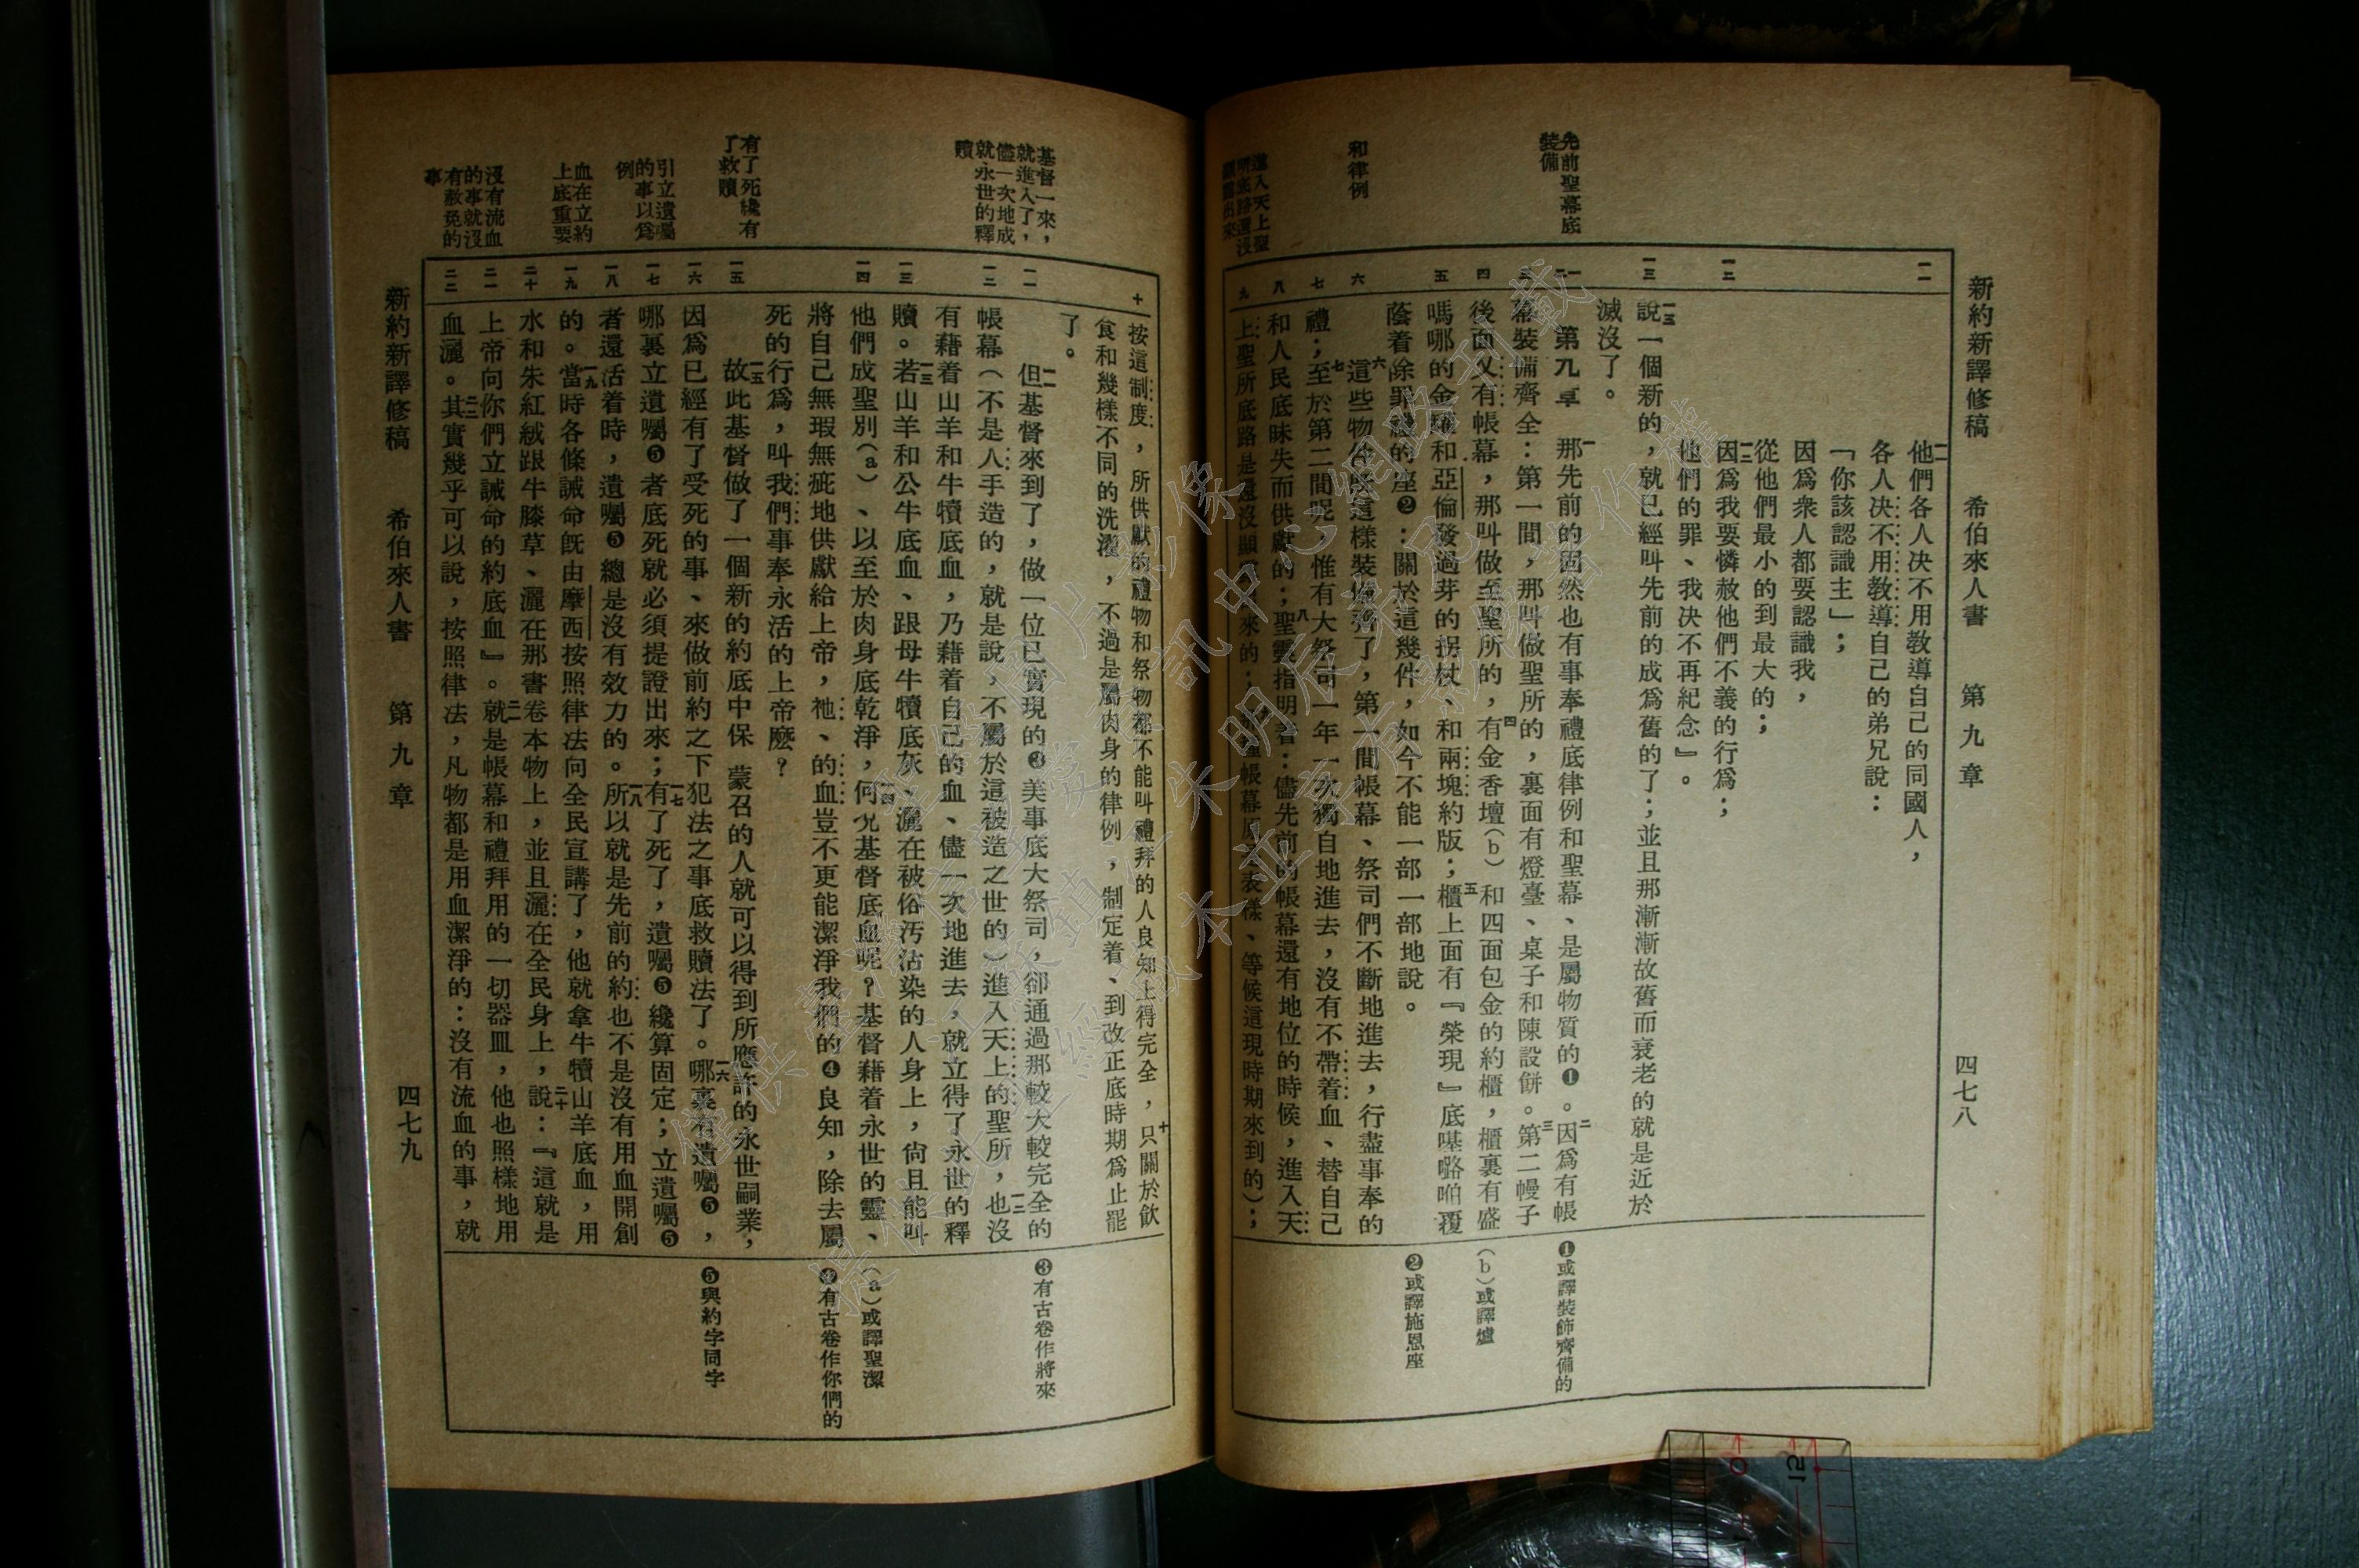 新約新譯修稿　希伯來人書　第九章　四七八
先前聖幕底
裝備
和律例
進入天上聖
所底路還沒
顯露出來
一一
一二
一三
一二
三
四
五
六
七
八
九
一一他們各人決不用教導自己的同國人，
各人決不用教導自己的弟兄說：
「你該認識主」；
因爲衆人都要認識我，
從他們最小的到最大的；
一二因爲我要憐赦他們不義的行爲；
他們的罪、我決不再紀念』。
一三說一個新的，就已經叫先前的成爲舊的了；並且那漸漸故舊而衰老的就是近於
滅沒了。
第九章　一那先前的固然也有事奉禮底律例和聖幕、是屬物質的❶。二因爲有帳
幕裝備齊全：第一間，那叫做聖所的，裏面有燈臺、桌子和陳設餅。三第二幔子
後面又有帳幕，那叫做至聖所的，四有金香壇（b）和四面包金的約櫃，櫃裏有盛
嗎哪的金罐和亞倫發過芽的拐杖、和兩塊約版；五櫃上面有『榮現』底𠹌𡀔咱覆
蔭着除罪蓋的座❷：關於這幾件，如今不能一部一部地說。
六這些物件旣這樣裝備齊了，第一間帳幕、祭司們不斷地進去，行盡事奉的
禮；七至於第二間呢，惟有大祭司一年一次獨自地進去，沒有不帶着血、替自己
和人民底昧失而供獻的；八聖靈指明着：儘先前的帳幕還有地位的時候，進入天
上聖所底路是還沒顯露出來的；九那種帳幕原是表樣、等候這現時期來到的）；
❶或譯裝飾齊備的
（b）或譯爐
❷或譯施恩座
基督一來，
就進入了，
儘一次地成
就永世的釋
贖
有了死纔有
了救贖
引立遺囑
的事以爲
例
血在立約
上底重要
沒有流血
的事就沒
有赦免的
事
十
一一
一二
一三
一四
一五
一六
一七
一八
一九
二十
二一
二二
按這制度，所供獻的禮物和祭物都不能叫禮拜的人良知上得完全，十只關於飲
食和幾樣不同的洗濯，不過是屬肉身的律例，制定着、到改正底時期爲止罷
了。
一一但基督來到了，做一位已實現的❸美事底大祭司，卻通過那較大較完全的
帳幕（不是人手造的，就是說，不屬於這被造之世的）進入天上的聖所，一二也沒
有藉着山羊和牛犢底血，乃藉着自己的血、儘一次地進去，就立得了永世的釋
贖。一三若山羊和公牛底血、跟母牛犢底灰、灑在被俗汚沾染的人身上，尙且能叫
他們成聖別（a）、以至於肉身底乾淨，一四何況基督底血呢？基督藉着永世的靈、
將自己無瑕無疵地供獻給上帝，祂、的血豈不更能潔淨我們的❹良知，除去屬
死的行爲，叫我們事奉永活的上帝麽？
一五故此基督做了一個新的約底中保　蒙召的人就可以得到所應許的永世嗣業，
因爲已經有了受死的事、來做前約之下犯法之事底救贖法了。一六哪裏有遺囑❺，
哪裏立遺囑❺者底死就必須提證出來；一七有了死了，遺囑❺纔算固定；立遺囑❺
者還活着時，遺囑❺總是沒有效力的。一八所以就是先前的約也不是沒有用血開創
的。一九當時各條誡命旣由摩西按照律法向全民宣講了，他就拿牛犢山羊底血，用
水和朱紅絨跟牛膝草、灑在那書卷本物上，並且灑在全民身上，二十說：『這就是
上帝向你們立誡命的約底血』。二一就是帳幕和禮拜用的一切器皿，他也照樣地用
血灑。二二其實幾乎可以說，按照律法，凡物都是用血潔淨的：沒有流血的事，就
❸有古卷作將來
（a）或譯聖潔
❹有古卷作你們的
❺與約字同字
新約新譯修稿　希伯來人書　第九章　四七九